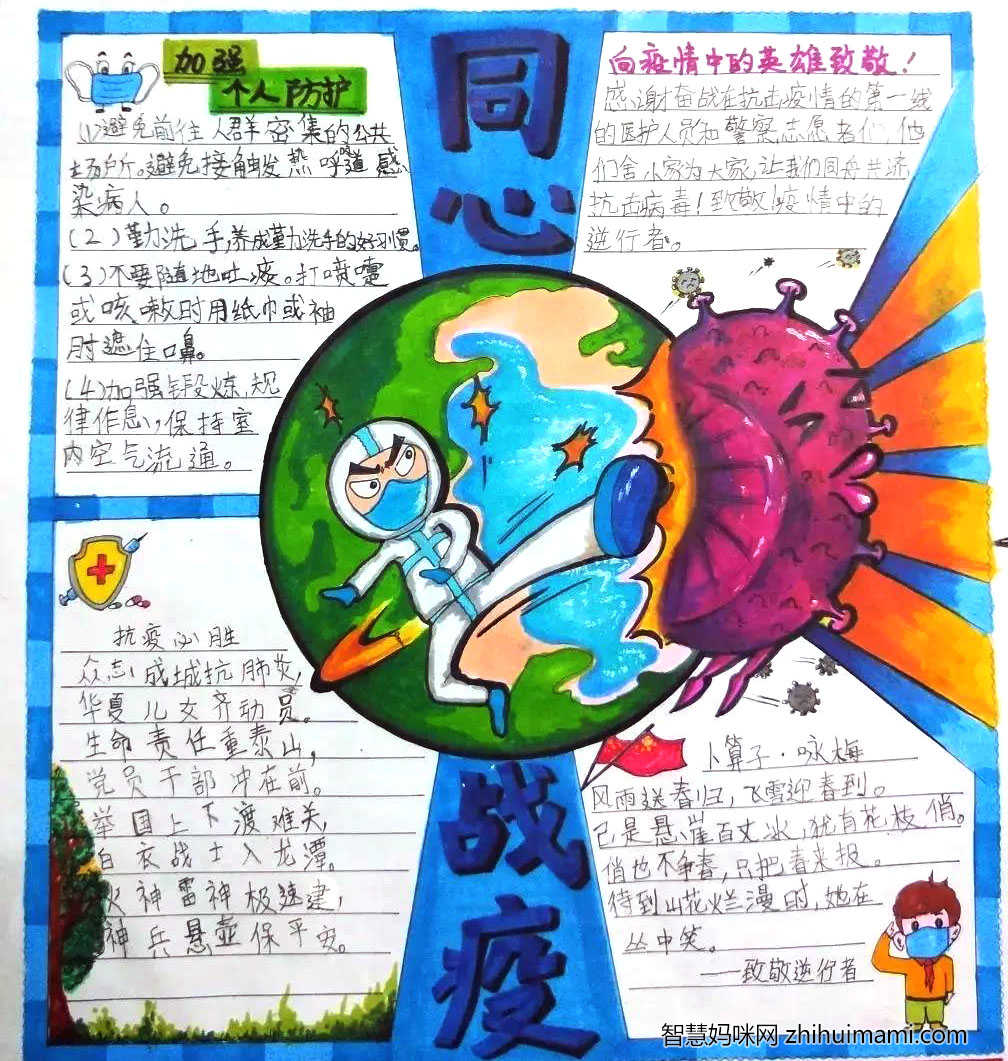 同心
战疫
加强
个人防护
(1)避免前往人群密集的公共
场所。避免接触发热呼道感
染病人。
(2)勤洗手,养成勤洗手的好习惯。
(3)不要随地吐痰。打喷嚏
或咳嗽时用纸巾或袖
肘遮住口鼻。
(4)加强锻炼,规
律作息,保持室
内空气流通。
向疫情中的英雄致敬!
感谢奋战在抗击疫情的第一线
的医护人员和警察,志愿者们,他
们舍小家为大家,让我们同舟共济,
抗击病毒!致敬!疫情中的
逆行者。
抗疫必胜
众志成城抗肺炎,
华夏儿女齐动员。
生命责任重泰山,
党员干部冲在前。
举国上下渡难关,
白衣战士入龙潭。
火神雷神极速建,
神兵悬壶保平安。
卜算子·咏梅
风雨送春归,飞雪迎春到。
已是悬崖百丈冰,犹有花枝俏。
俏也不争春,只把春来报。
待到山花烂漫时,她在
丛中笑。
——致敬逆行者
智慧妈咪网 zhihuimami.com